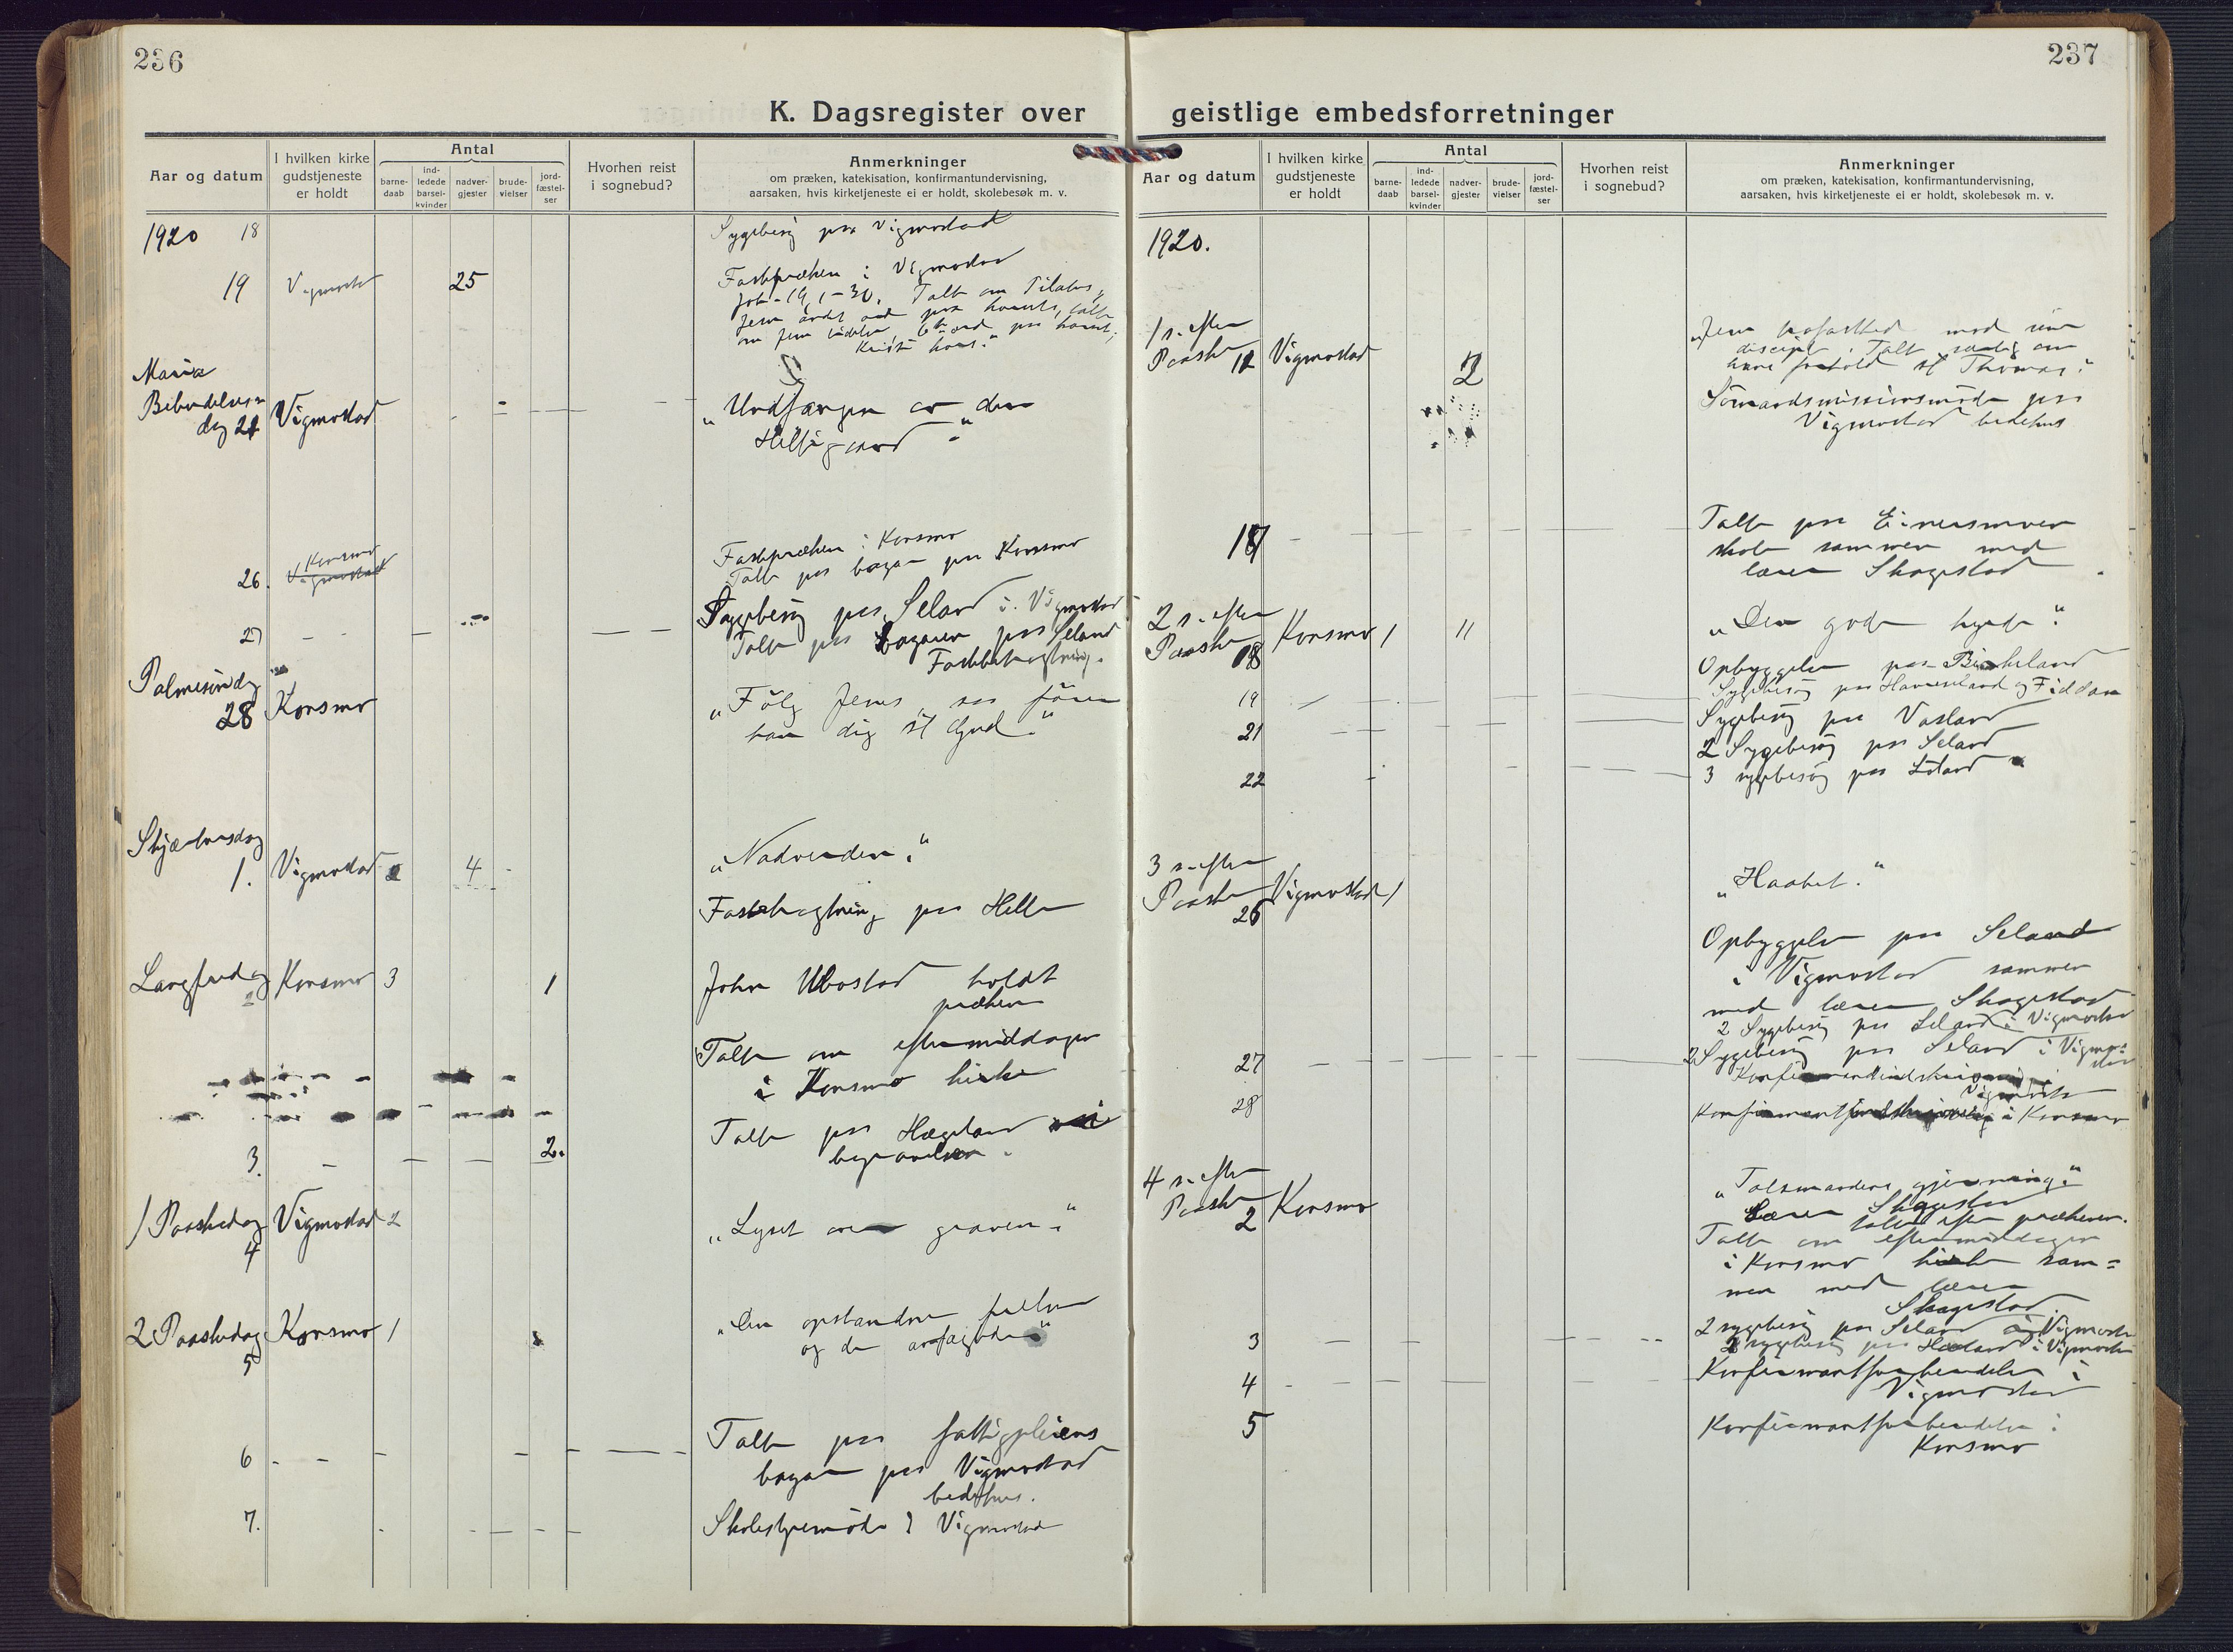 236
K. Dagsregister over
Aar og datum
I hvilken kirke
gudstjeneste
er holdt
Antal
barne-
daab
ind-
ledede
barsel-
kvinder
nadver-
gjester
brude-
vielser
jord-
fæstel-
ser
Hvorhen reist
i sognebud?
Anmerkninger
om præken, katekisation, konfirmantundervisning,
aarsaken, hvis kirketjeneste ei er holdt, skolebesøk m. v.
1920 18 Sygebesøg paa Vigmostad
19 Vigmostad 25 Fastepræken i Vigmostad
Joh. 19, 1-30. Talte om Pilatus,
Maria
Bebudelses
dag 21 Vigmostad
"Undfangen av den
Hellig aand"
26. Konsmo
Vigmostad
Fastepræken i Konsmo
Talte paa basar paa Konsmo
27 Sygebesøg paa Seland i Vigmostad
Talte paa basaren paa Seland
Fastebetragtning.
Palmesøndag
28 Konsmo
"Følg Jesus, saa fører
han dig til Gud."
Skjærtorsdag
1. Vigmostad 2 4 "Nadverden."
Fastebetragtning paa Helle
Langfredag
2 Konsmo 3 1
John Ubostad holdt
præken
Talte om eftermiddagen
i Konsmo kirke
Talte paa Hægeland i
begravelsen.
3. 2.
1 Paaskedag
4 Vigmostad 2
"Lyset over graven."
2 Paaskedag
5 Konsmo 1
"Den opstandne frelser
og de
6 Talte paa fattigpleiens
basar paa Vigmostad
bedehus.
7. Skolestyremøde i Vigmostad
237
geistlige embedsforretninger
Aar og datum
I hvilken kirke
gudstjeneste
er holdt
Antal
barne-
daab
ind-
ledede
barsel-
kvinder
nadver-
gjester
brude-
vielser
jord-
fæstel-
ser
Hvorhen reist
i sognebud?
Anmerkninger
om præken, katekisation, konfirmantundervisning,
aarsaken, hvis kirketjeneste ei er holdt, skolebesøk m. v.
1920.
1 s. efter
Paaske 11 Vigmostad 2
"Jesu trofasthed mod sine
disciple. Talte særlig om
hans forhold til Thomas."
Sømandsmissionsmøde paa
Vigmostad bedehus
17 Talte paa Einersmoen
skole sammen med
lærer Skagestad
2 s. efter
Paaske 18 Konsmo 1 11
"Den gode hyrde."
Opbyggelse paa Birkeland
19 Sygebesøg paa Haaverstad og Fiddan
21 Sygebesøg paa Vasland
2 Sygebesøg paa Seland
22 3 sygebesøg paa Seland
3 s. efter
Paaske
25 Vigmostad 1
"Haabet."
Opbyggelse paa Seland
i Vigmostad sammen
med lærer Skagestad
2 Sygebesøg paa Seland i Vigmostad
27 2 Sygebesøg paa Seland i Vigmo-
stad
Vigmostad
28 i Konsmo
4 s. efter
Paaske
2 Konsmo
"Talsmandens gjerning."
Lærer Skagestad
talte efter prækenen.
Talte om eftermiddagen
i Konsmo kirke sam=
men med lærer
Skagestad.
3 2 sygebesøg paa Seland i Vigmostad
2 sygebesøg paa Hæaland i Vigmostad
4 Konfirmantforberedelse i
Vigmostad
5 Konfirmantforberedelse i
Konsmo